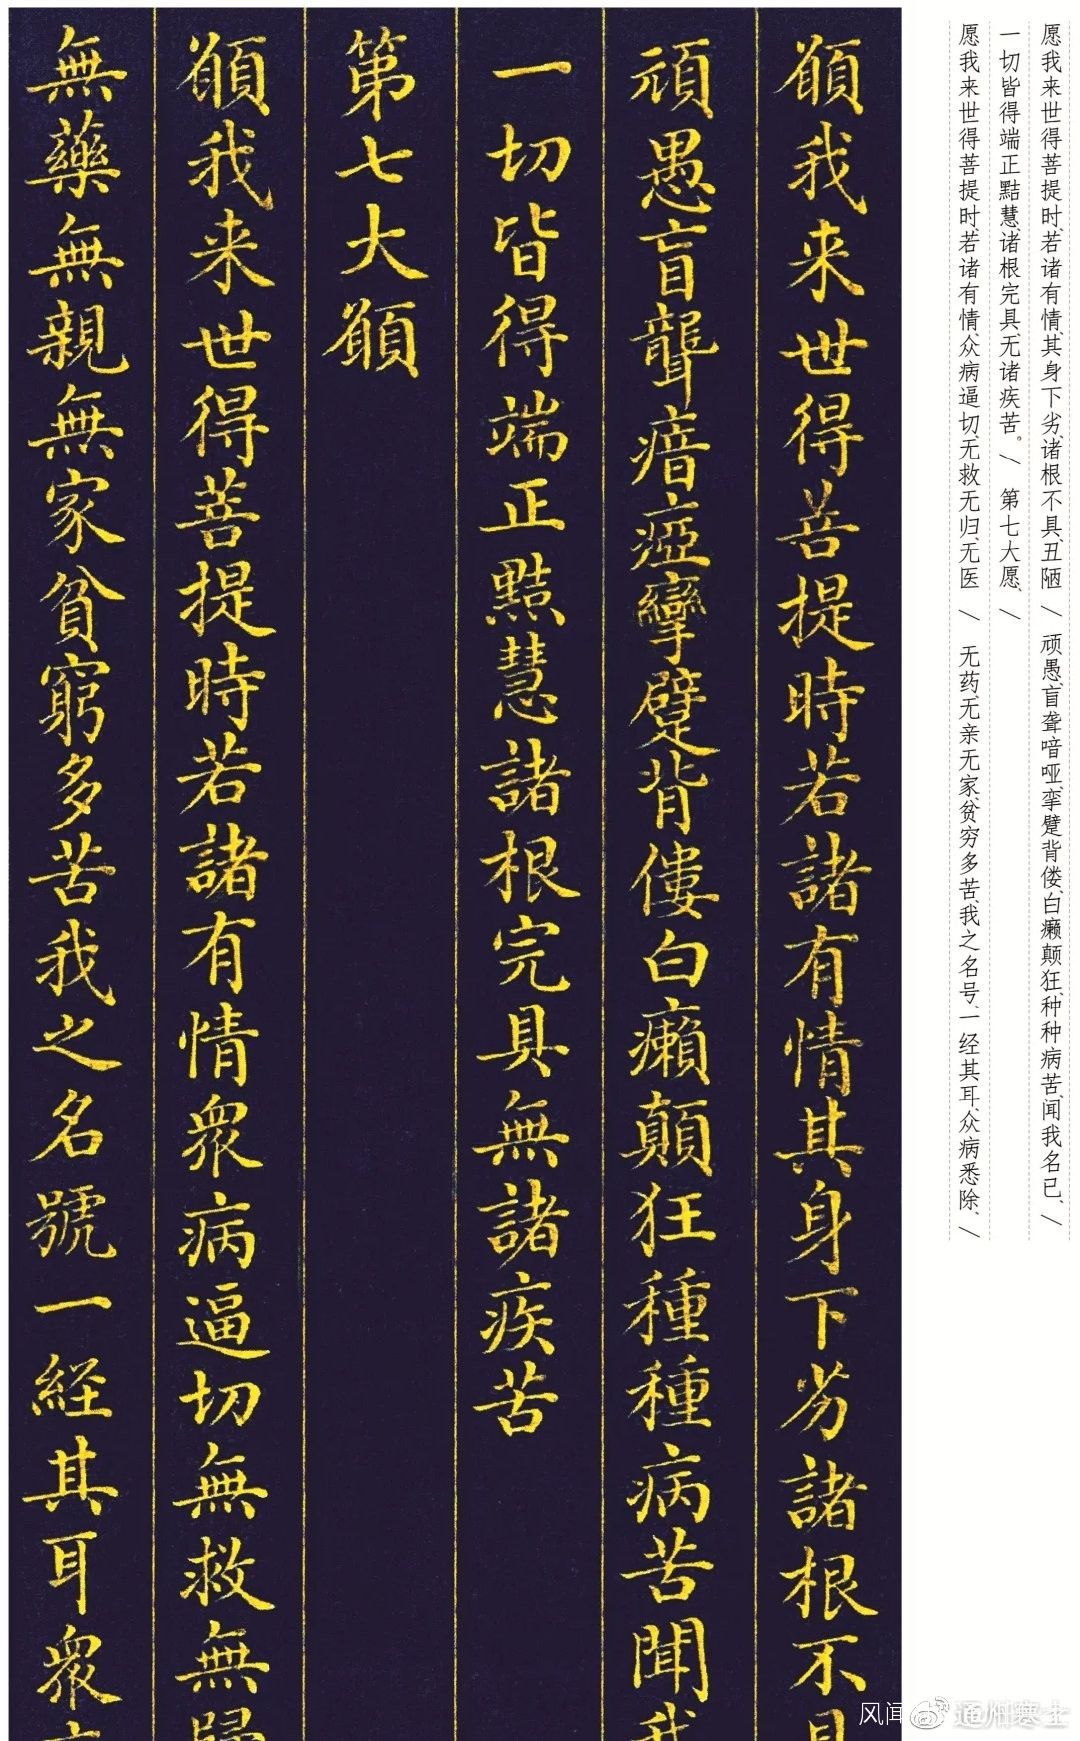 愿我来世得菩提时、若诸有情、其身下劣、诸根不具、丑陋 / 顽愚、盲聋喑哑、挛躄背偻、白癞颠狂、种种病苦、闻我名已、/
一切皆得端正黠慧、诸根完具、无诸疾苦。/ 第七大愿、/
愿我来世得菩提时、若诸有情、众病逼切、无救无归、无医 / 无药、无亲无家、贫穷多苦、我之名号、一经其耳、众病悉除、/
願我来世得菩提時若諸有情其身下劣諸根不具
頑愚盲聾瘖瘂攣躄背僂白癩顛狂種種病苦聞我
一切皆得端正黠慧諸根完具無諸疾苦
第七大願
願我来世得菩提時若諸有情衆病逼切無救無歸
無藥無親無家貧窮多苦我之名號一経其耳衆
风闻
通州寒士